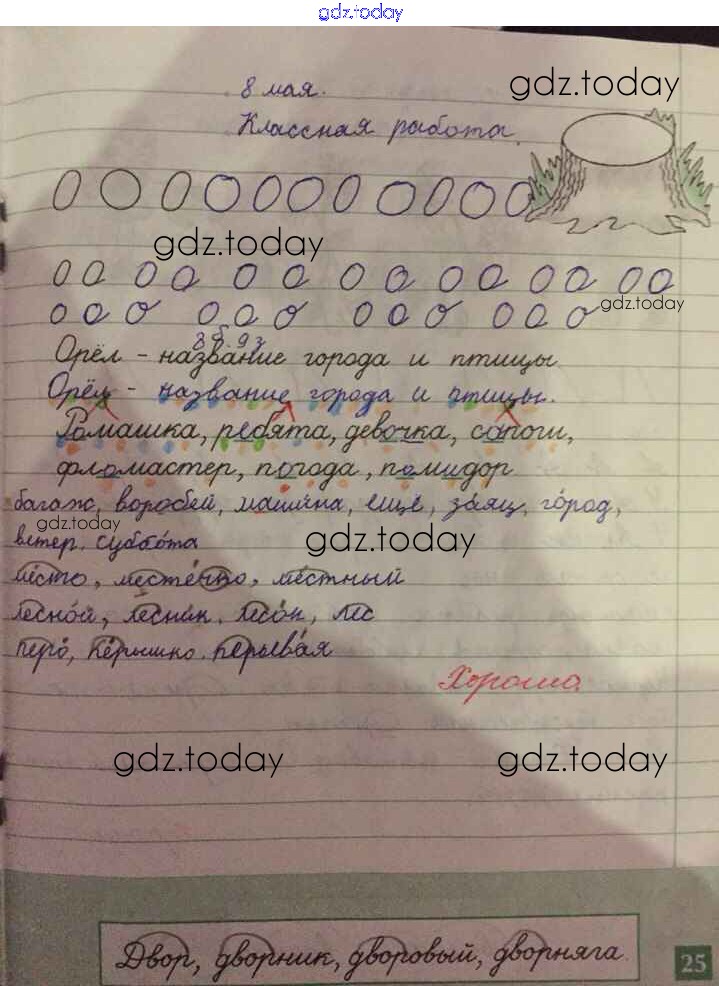 gdz.today
8 мая.
gdz.today
Классная работа.
gdz.today
gdz.today
Орёл - название города и птицы
Орём - название города и птицы.
Ромашка, ребята, девочка, сапоги,
фломастер, погода, помидор
багаж, воробей, машина, ещё, заяц, город,
gdz.today
gdz.today
ветер. суббота
место, местечко, местный
лесной, лесник, лесок, лес
перо, пёрышко. перьевая
Хорошо.
gdz.today
gdz.today
Двор, дворник, дворовый, дворняга.
25